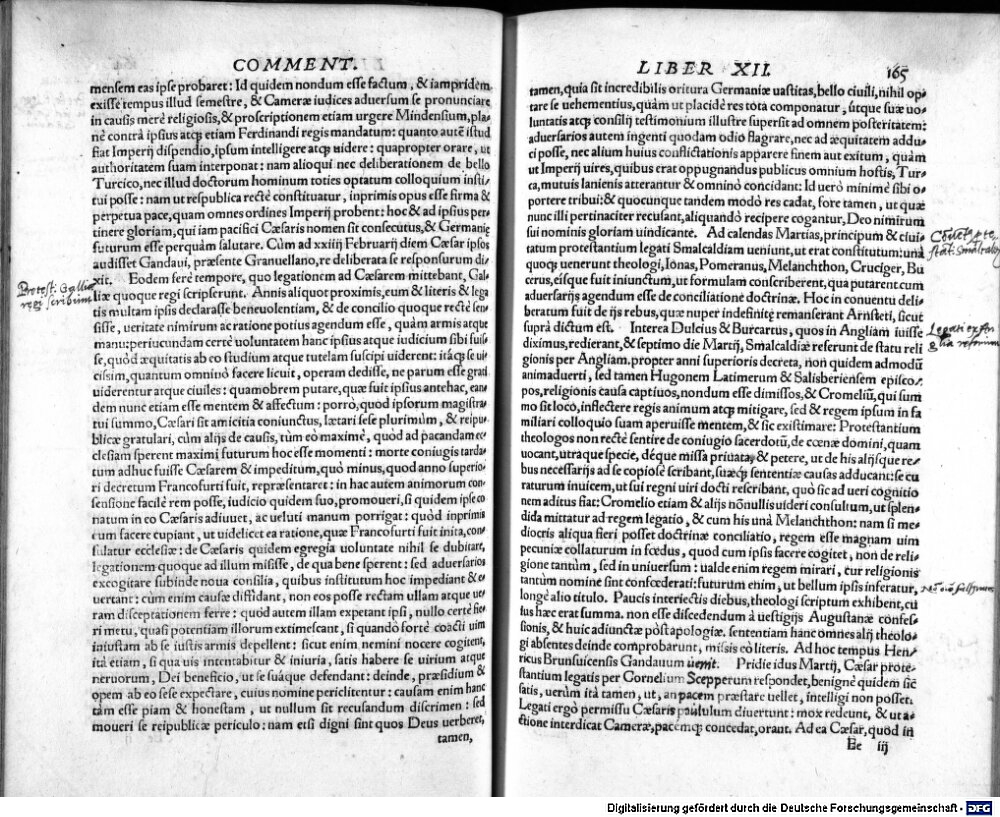 COMMENT.
mensem eas ipse probaret: Id quidem nondum esse factum, & iampridem
exisse tempus illud semestre, & Cameræ iudices aduersum se pronunciare
in causis merè religiosis, & proscriptionem etiam urgere Mindensium, pla-
nè contrà ipsius atqʒ etiam Ferdinandi regis mandatum: quanto autẽ istud
fiat Imperij dispendio, ipsum intelligere atqʒ uidere: quapropter orare, ut
authoritatem suam interponat: nam alioqui nec deliberationem de bello
Turcico, nec illud doctorum hominum toties optatum colloquium insti-
tui posse: nam ut respublica rectè constituatur, inprimis opus esse firma &
perpetua pace, quam omnes ordines Imperij probent: hoc & ad ipsius per-
tinere gloriam, qui iam pacifici Cæsaris nomen sit consecutus, & Germanię
futurum esse perquàm salutare. Cùm ad xxiiij Februarij diem Cæsar ipsos
audisset Gandaui, præsente Granuellano, re deliberata se responsurum di-
xit. Eodem ferè tempore, quo legationem ad Cæsarem mittebant, Gal-
liæ quoque regi scripserunt. Annis aliquot proximis, eum & literis & lega-
tis multam ipsis declarasse beneuolentiam, & de concilio quoque rectè sen-
sisse, ueritate nimirum ac ratione potius agendum esse, quàm armis atque
manu: periucundam certè uoluntatem hanc ipsius atque iudicium sibi fuis-
se, quòd æquitatis ab eo studium atque tutelam suscipi uiderent: itàqʒ se ui-
cissim, quantum omninò facere licuit, operam dedisse, ne parum esse grati
uiderentur atque ciuiles: quamobrem putare, quæ fuit ipsius antehac, ean-
dem nunc etiam esse mentem & affectum: porrò, quod ipsorum magistra-
tui summo, Cæsari sit amicitia coniunctus, lætari sese plurimùm, & reipu-
blicæ gratulari, cùm alijs de causis, tùm eò maximè, quòd ad pacandam ec-
clesiam sperent maximi futurum hoc esse momenti: morte coniugis tarda-
tum adhuc fuisse Cæsarem & impeditum, quò minus, quod anno superio-
ri decretum Francofurti fuit, repræsentaret: in hac autem animorum con-
sensione facilè rem posse, iudicio quidem suo, promoueri, si quidem ipse co-
natum in eo Cæsaris adiuuet, ac ueluti manum porrigat: quòd inprimis
eum facere cupiant, ut uidelicet ea ratione, quæ Francofurti fuit inita, con-
sulatur ecclesiæ: de Cæsaris quidem egregia uoluntate nihil se dubitare,
legationem quoque ad illum misisse, de qua bene sperent: sed aduersarios
excogitare subinde noua consilia, quibus institutum hoc impediant & e-
uertant: cùm enim causæ diffidant, non eos posse rectam ullam atque ue-
ram disceptationem ferre: quòd autem illam expetant ipsi, nullo certè fie-
ri metu, quasi potentiam illorum extimescant, si quando fortè coacti uim
iniustam ab se iustis armis depellent: sicut enim nemini nocere cogitent,
ità etiam, si qua uis intentabitur & iniuria, satis habere se uirium atque
neruorum, Dei beneficio, ut se suáque defendant: deinde, præsidium &
opem ab eo sese expectare, cuius nomine periclitentur: causam enim hanc
tam esse piam & honestam, ut nullum sit recusandum discrimen: sed
moueri se reipublicæ periculo: nam etsi digni sint quos Deus uerberet,
tamen,
LIBER XII.
165
tamen, quia sit incredibilis oritura Germaniæ uastitas, bello ciuili, nihil op-
tare se uehementius, quàm ut placidè res tota componatur, útque suæ uo-
luntatis atqʒ consilij testimonium illustre supersit ad omnem posteritatem:
aduersarios autem ingenti quodam odio flagrare, nec ad æquitatem addu-
ci posse, nec alium huius conflictationis apparere finem aut exitum, quàm
ut Imperij uires, quibus erat oppugnandus publicus omnium hostis, Tur-
ca, mutuis lanienis atterantur & omninò concidant: Id uerò minimè sibi o-
portere tribui: & quocunque tandem modo res cadat, fore tamen, ut quæ
nunc illi pertinaciter recusant, aliquandò recipere cogantur, Deo nimirum
sui nominis gloriam uindicante. Ad calendas Martias, principum & ciui-
tatum protestantium legati Smalcaldiam ueniunt, ut erat constitutum: unà
quoqʒ uenerunt theologi, Ionas, Pomeranus, Melanchthon, Cruciger, Bu-
cerus, eisque fuit iniunctum, ut formulam conscriberent, qua putarent cum
aduersarijs agendum esse de conciliatione doctrinæ. Hoc in conuentu deli-
beratum fuit de ijs rebus, quæ nuper indefinitę remanserant Arnsteti, sicut
suprà dictum est. Interea Dulcius & Burcartus, quos in Angliam iuisse
diximus, redierant, & septimo die Martij, Smalcaldiæ referunt de statu reli-
gionis per Angliam. propter anni superioris decreta, non quidem admodũ
animaduerti, sed tamen Hugonem Latimerum & Salisberiensem episco-
pos, religionis causa captiuos, nondum esse dimissos, & Cromeliũ, qui sum-
mo sit loco, inflectere regis animum atqʒ mitigare, sed & regem ipsum in fa-
miliari colloquio suam aperuisse mentem, & sic existimare: Protestantium
theologos non rectè sentire de coniugio sacerdotũ, de cœnæ domini, quam
uocant, utraque specie, déque missa priuata, & petere, ut de his alijsque re-
bus necessarijs ad se copiosè scribant, suæqʒ sententiæ causas adducant: se cu-
raturum inuicem, ut sui regni uiri docti rescribant, quò sic ad ueri cognitio-
nem aditus fiat: Cromelio etiam & alijs nõnullis uideri consultum, ut splen-
dida mittatur ad regem legatio, & cum his unà Melanchthon: nam si me-
diocris aliqua fieri posset doctrinæ conciliatio, regem esse magnam uim
pecuniæ collaturum in fœdus, quod cum ipsis facere cogitet, non de reli-
gione tantùm, sed in uniuersum: ualde enim regem mirari, cur religionis
tantùm nomine sint confœderati: futurum enim, ut bellum ipsis inferatur,
longè alio titulo. Paucis interiectis diebus, theologi scriptum exhibent, cu-
ius hæc erat summa. non esse discedendum à uestigijs Augustanæ confes-
sionis, & huic adiunctæ pòst apologiæ. sententiam hanc omnes alij theolo-
gi absentes deinde comprobarunt, missis eò literis. Ad hoc tempus Hen-
ricus Brunsuicensis Gandauum uenit. Pridie idus Martij, Cæsar prote-
stantium legatis per Cornelium Scepperum respondet, benignè quidem sic
satis, uerùm ità tamen, ut, an pacem præstare uellet, intelligi non posset.
Legati ergò permissu Cæsaris paululum diuertunt: mox redeunt, & ut a-
ctione interdicat Cameræ, pacemqʒ concedat, orant. Ad ea Cæsar, quòd in
Ee iij
Digitalisierung gefördert durch die Deutsche Forschungsgemeinschaft - DFG